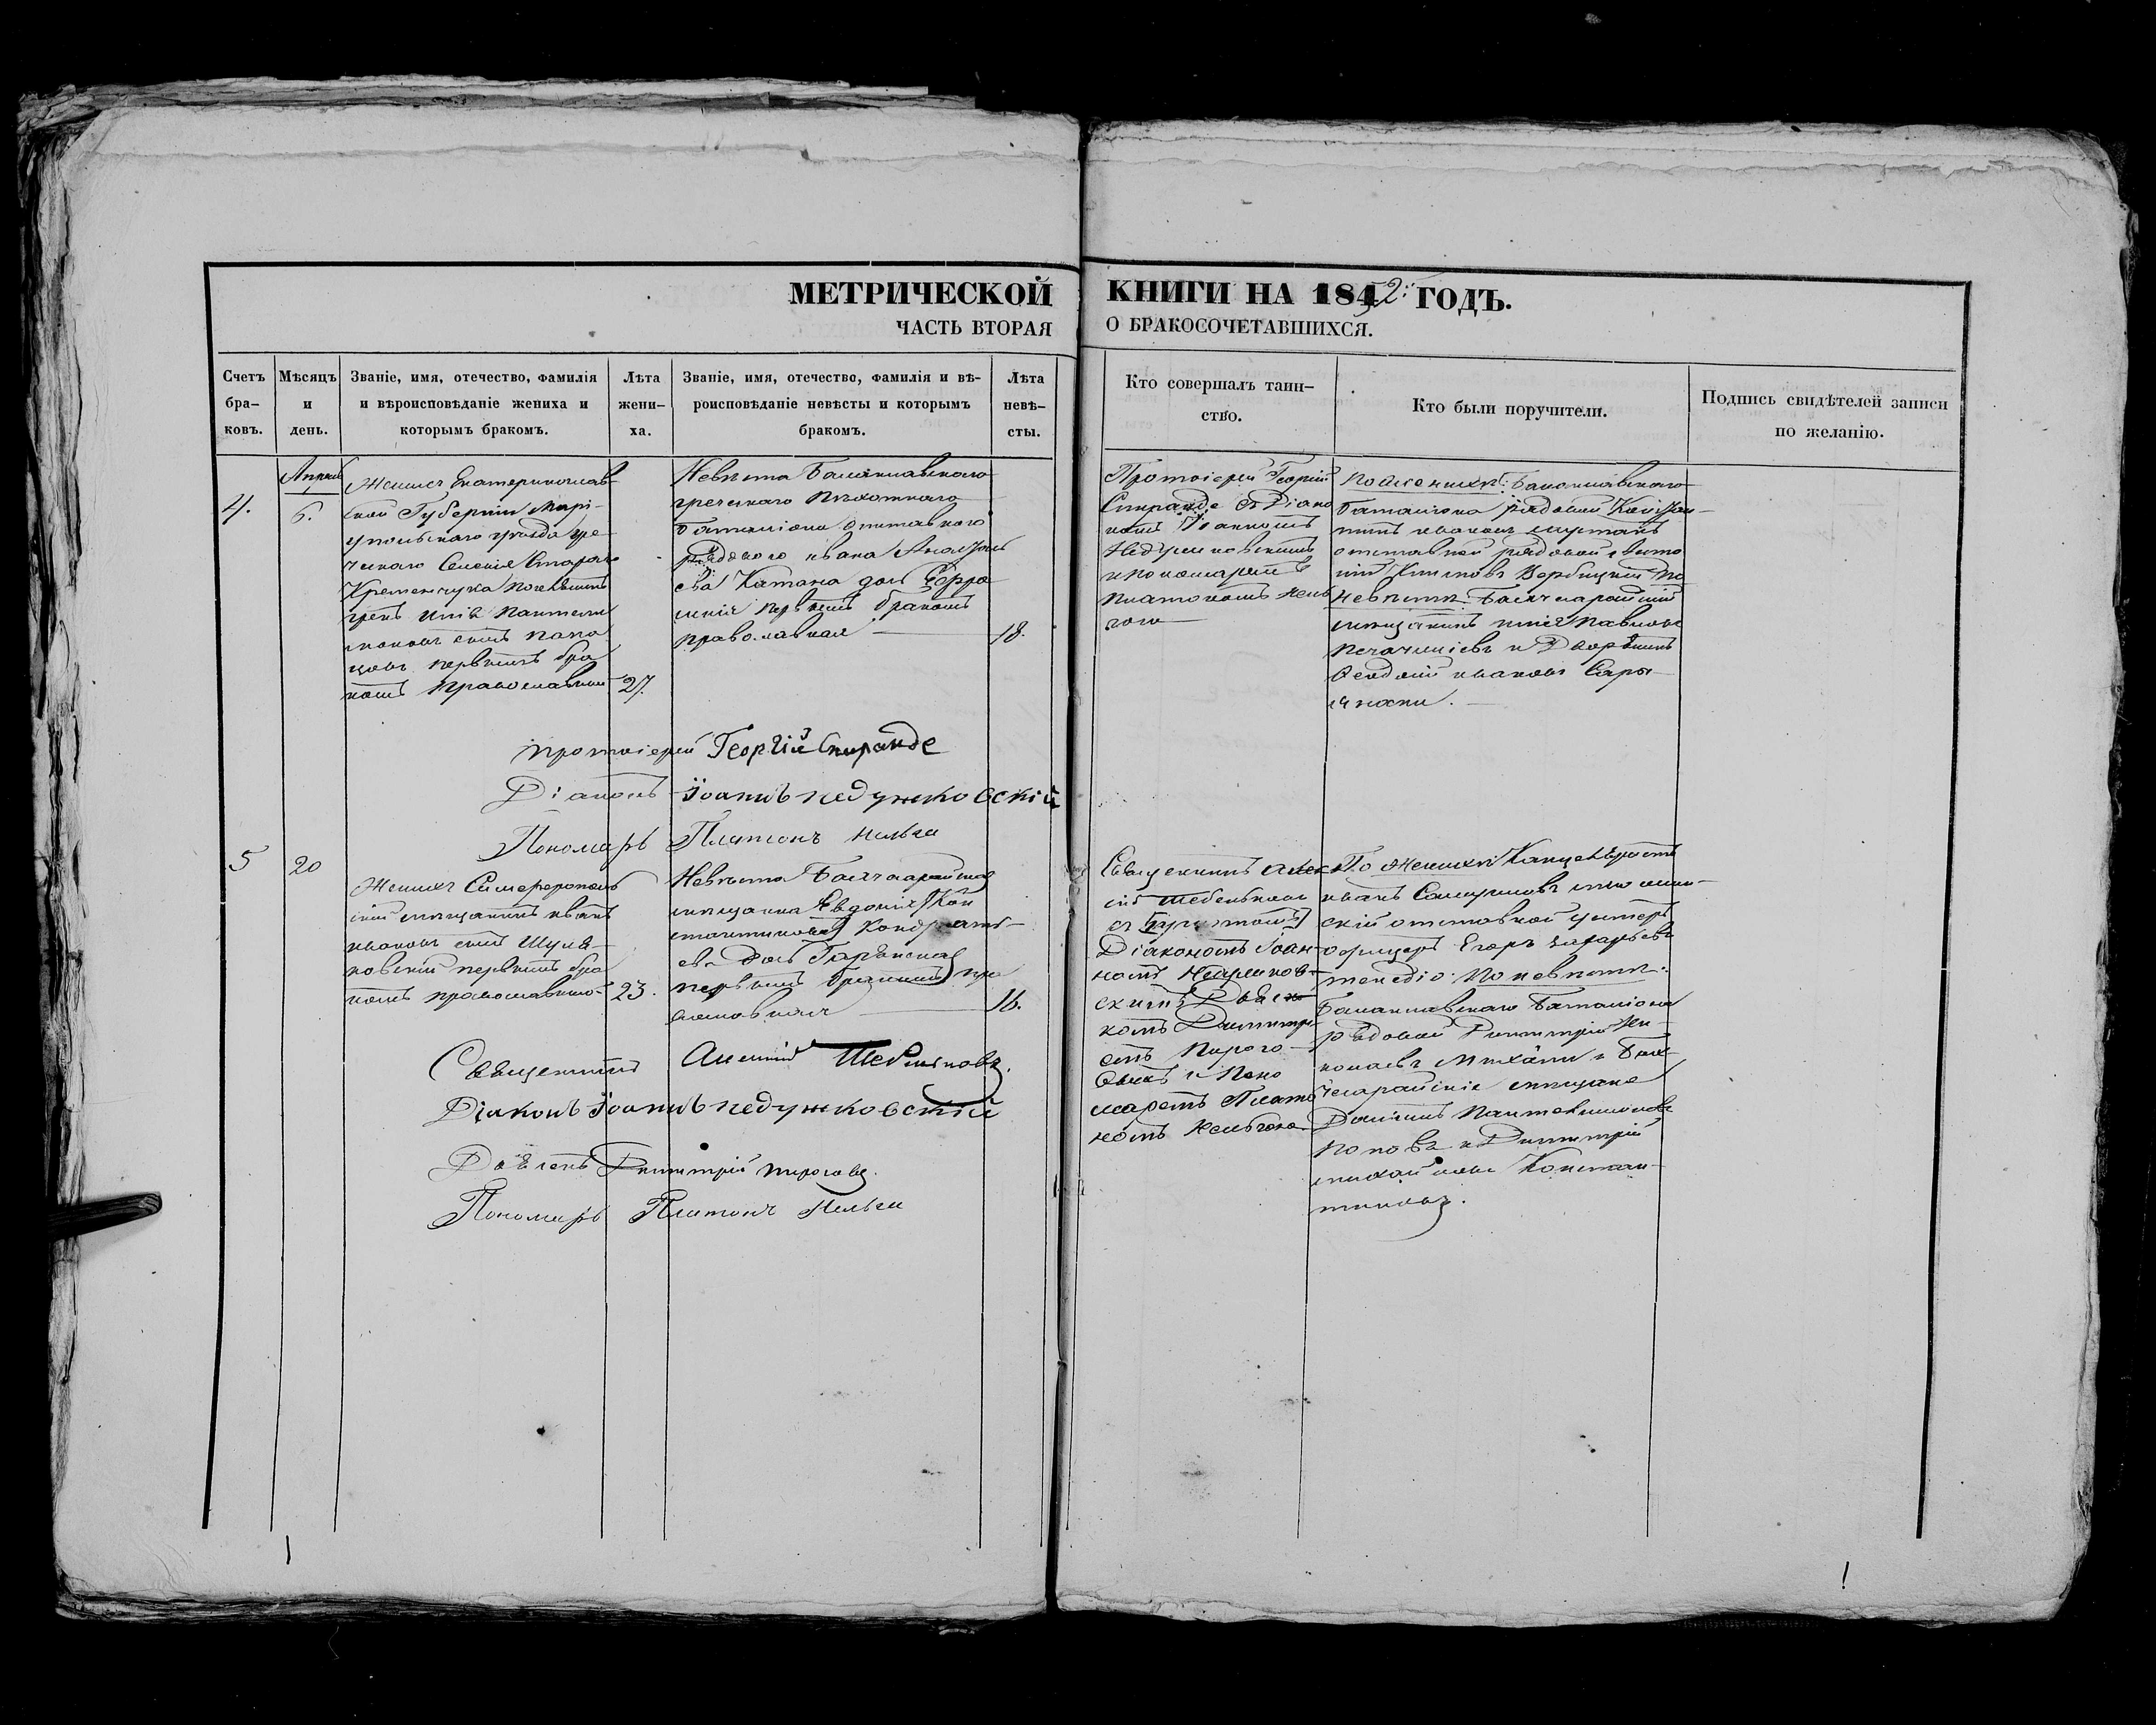 МЕТРИЧЕСКОЙ КНИГИ НА 1852: ГОДЪ.
ЧАСТЬ ВТОРАЯ О БРАКОСОЧЕТАВШИХСЯ.
Счетъ
бра-
ковъ.
Мѣсяцъ
и
день.
Званіе, имя, отечество, фамилія
и вѣроисповѣданіе жениха и
которымъ бракомъ.
Лѣта
жени-
ха.
Званіе, имя, отечество, фамилія и вѣ-
роисповѣданіе невѣсты и которымъ
бракомъ.
Лѣта
невѣ-
сты.
Кто совершалъ таин-
ство.
Кто были поручители.
Подпись свидѣтелей записи
по желанію.
4.
Апрель
6.
Женихъ Екатеринослав-
ской Губерніи Марі-
упольскаго уѣзда гре-
ческаго Селенія Стараго
Кременчука поселянинъ
грекъ Илія Пантели
моновъ сынъ Папа
цовъ первымъ бра
комъ православный
27.
Невѣста Балаклавскаго
греческаго Пѣхотнаго
баталіона отставнаго
рядоваго Ивана Анастась
ева Катана дочь Ефро
синія первымъ бракомъ
православная
18.
Протоіерей Георгій
Спиранде съ Діако
номъ Іоанномъ
Недзумковскимъ
и пономаремъ
Платономъ Нель
гого
По женихѣ: Балаклавскаго
баталіона рядовой Констан-
тинъ Ивановъ
отставной рядовой
Вербицкій По
невѣстѣ Бахчисарайскій
мѣщанинъ Илія Павловъ
и Дворянинъ
Ѳеодосій Ивановъ Сары
Протоіерей Георгій Спиранде
Діаконъ Іоаннъ Недзумковскій
Пономарь Платонъ Нельга
5
20
Женихъ Симферополь
скій мѣщанинъ Иванъ
Ивановъ сынъ Шуля-
ковскій первымъ бра
комъ православный
23.
Невѣста Бахчисарайская
мѣщанка Евдокія Кон
стантинова Кондрать-
ева дочь
первымъ бракомъ пра
вославная
16.
Священникъ Алексѣ
ій
съ
Діакономъ Іоан-
номъ Недзумков-
скимъ Дьяч
комъ Димитрі
емъ Пирого-
вымъ и Поно
маремъ Плато
номъ Нельгою
По женихѣ Канцеляристъ
Иванъ
скій отставной унтеръ
офицеръ Егоръ Захарьевъ
По невѣстѣ:
Балаклавскаго баталіона
рядовой Димитрій Ни-
колаевъ и Бах
чисарайскіе мѣщане
Пантелимоновъ
Поповъ и Димитрій
Михайловъ Констан-
тиновъ.
Священникъ Алексій
Діаконъ Іоаннъ Недзумковскій
Дьячекъ Димитрій Пироговъ.
Пономарь Платонъ Нельга